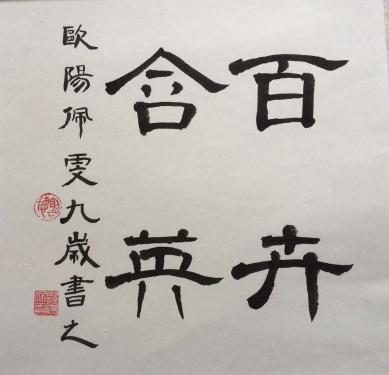 百卉
含英
歐陽佩雯九歲書之